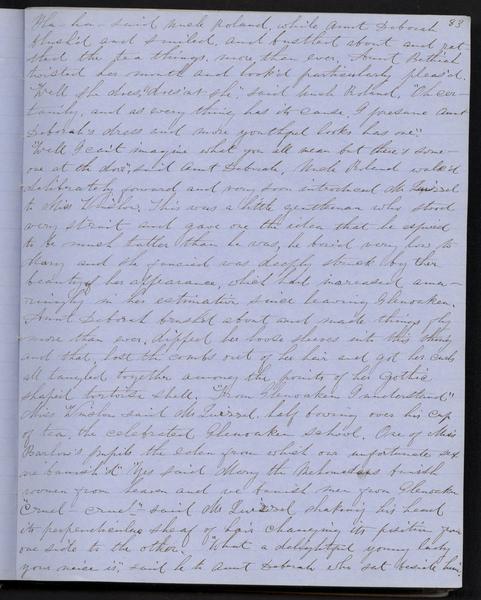 "Ha-ha-" said Uncle Roland, while Aunt Deborah 83
blush'd and smiled, and bustled about and rat-
tled the tea things, more than ever. Aunt Bethiah
twisted her mouth and look'd particularly pleas'd.
"Well she does, does'nt she," said Uncle Roland, "Oh cer-
tainly, and as every thing has its cause, I presume Aunt
Deborah's dress and more youthful looks has one."
"Well I can't imagine what you all mean but there's some-
one at the door", said Aunt Deborah, Uncle Roland walk'd
deliberately forward and very soon introduced Mr
to Miss Winslow. This was a little gentleman who stood
very strait and gave one the idea that he aspired
to be much taller than he was, he bow'd very low to
Mary and she fancied was deeply struck by the
beauty of her appearance, which had increased ama-
zingly in her estimation since leaving Glenoaken.
Aunt Deborah brush'd about and made things fly
more than ever, dipped her loose sleeves into this thing
and that, lost the combs out of her hair and got her curls
all tangled together among the points of her Gothic
shaped tortoise shell. "From Glenoaken I understand"
Miss Winslow said Mr half bowing over his cup
of tea, the celebrated Glenoaken school. One of Miss
Barton's pupils the eden from which our unfortunate sex
are banish'd" "Yes said Mary the Mahometans banish
women from heaven and we banish men from Glenoaken
"Cruel - cruel -" said Mr shaking his head
its perpendicular sheaf of hair changing its position from
one side to the other. "What a delightful young lady
your neice is", said he to Aunt Deborah who sat beside him,